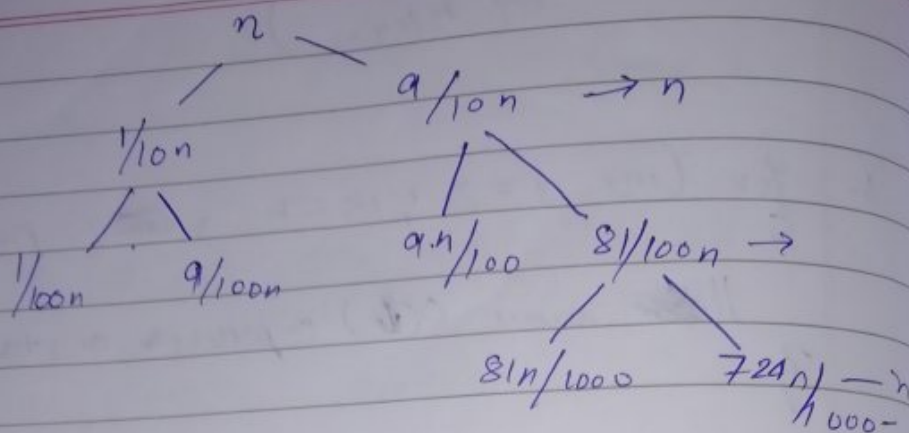 n
1/10n 9/10n → n
1/100n 9/100n 9.n/100 81/100n →
81n/1000 724n/1000 — n